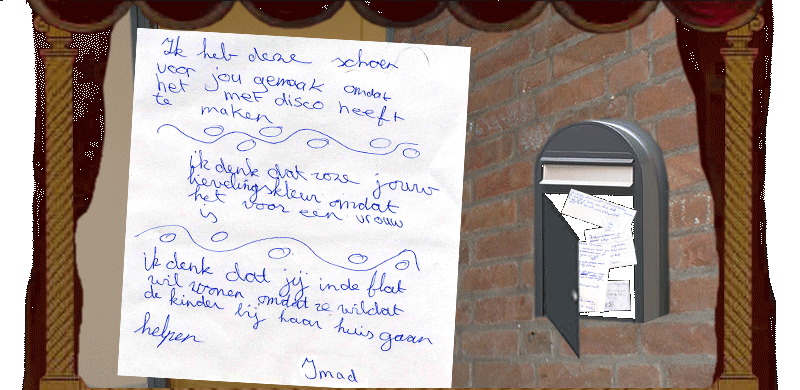 Ik heb deze schoen
voor jou gemaak omdat
het met disco heeft
te maken
ik denk dat roze jouw
lievelingskleur omdat
het voor een vrouw
is
ik denk dat jij inde flat
wil wonen omdat ze wildat
de kinder bij haar huis gaan
helpen
Imad